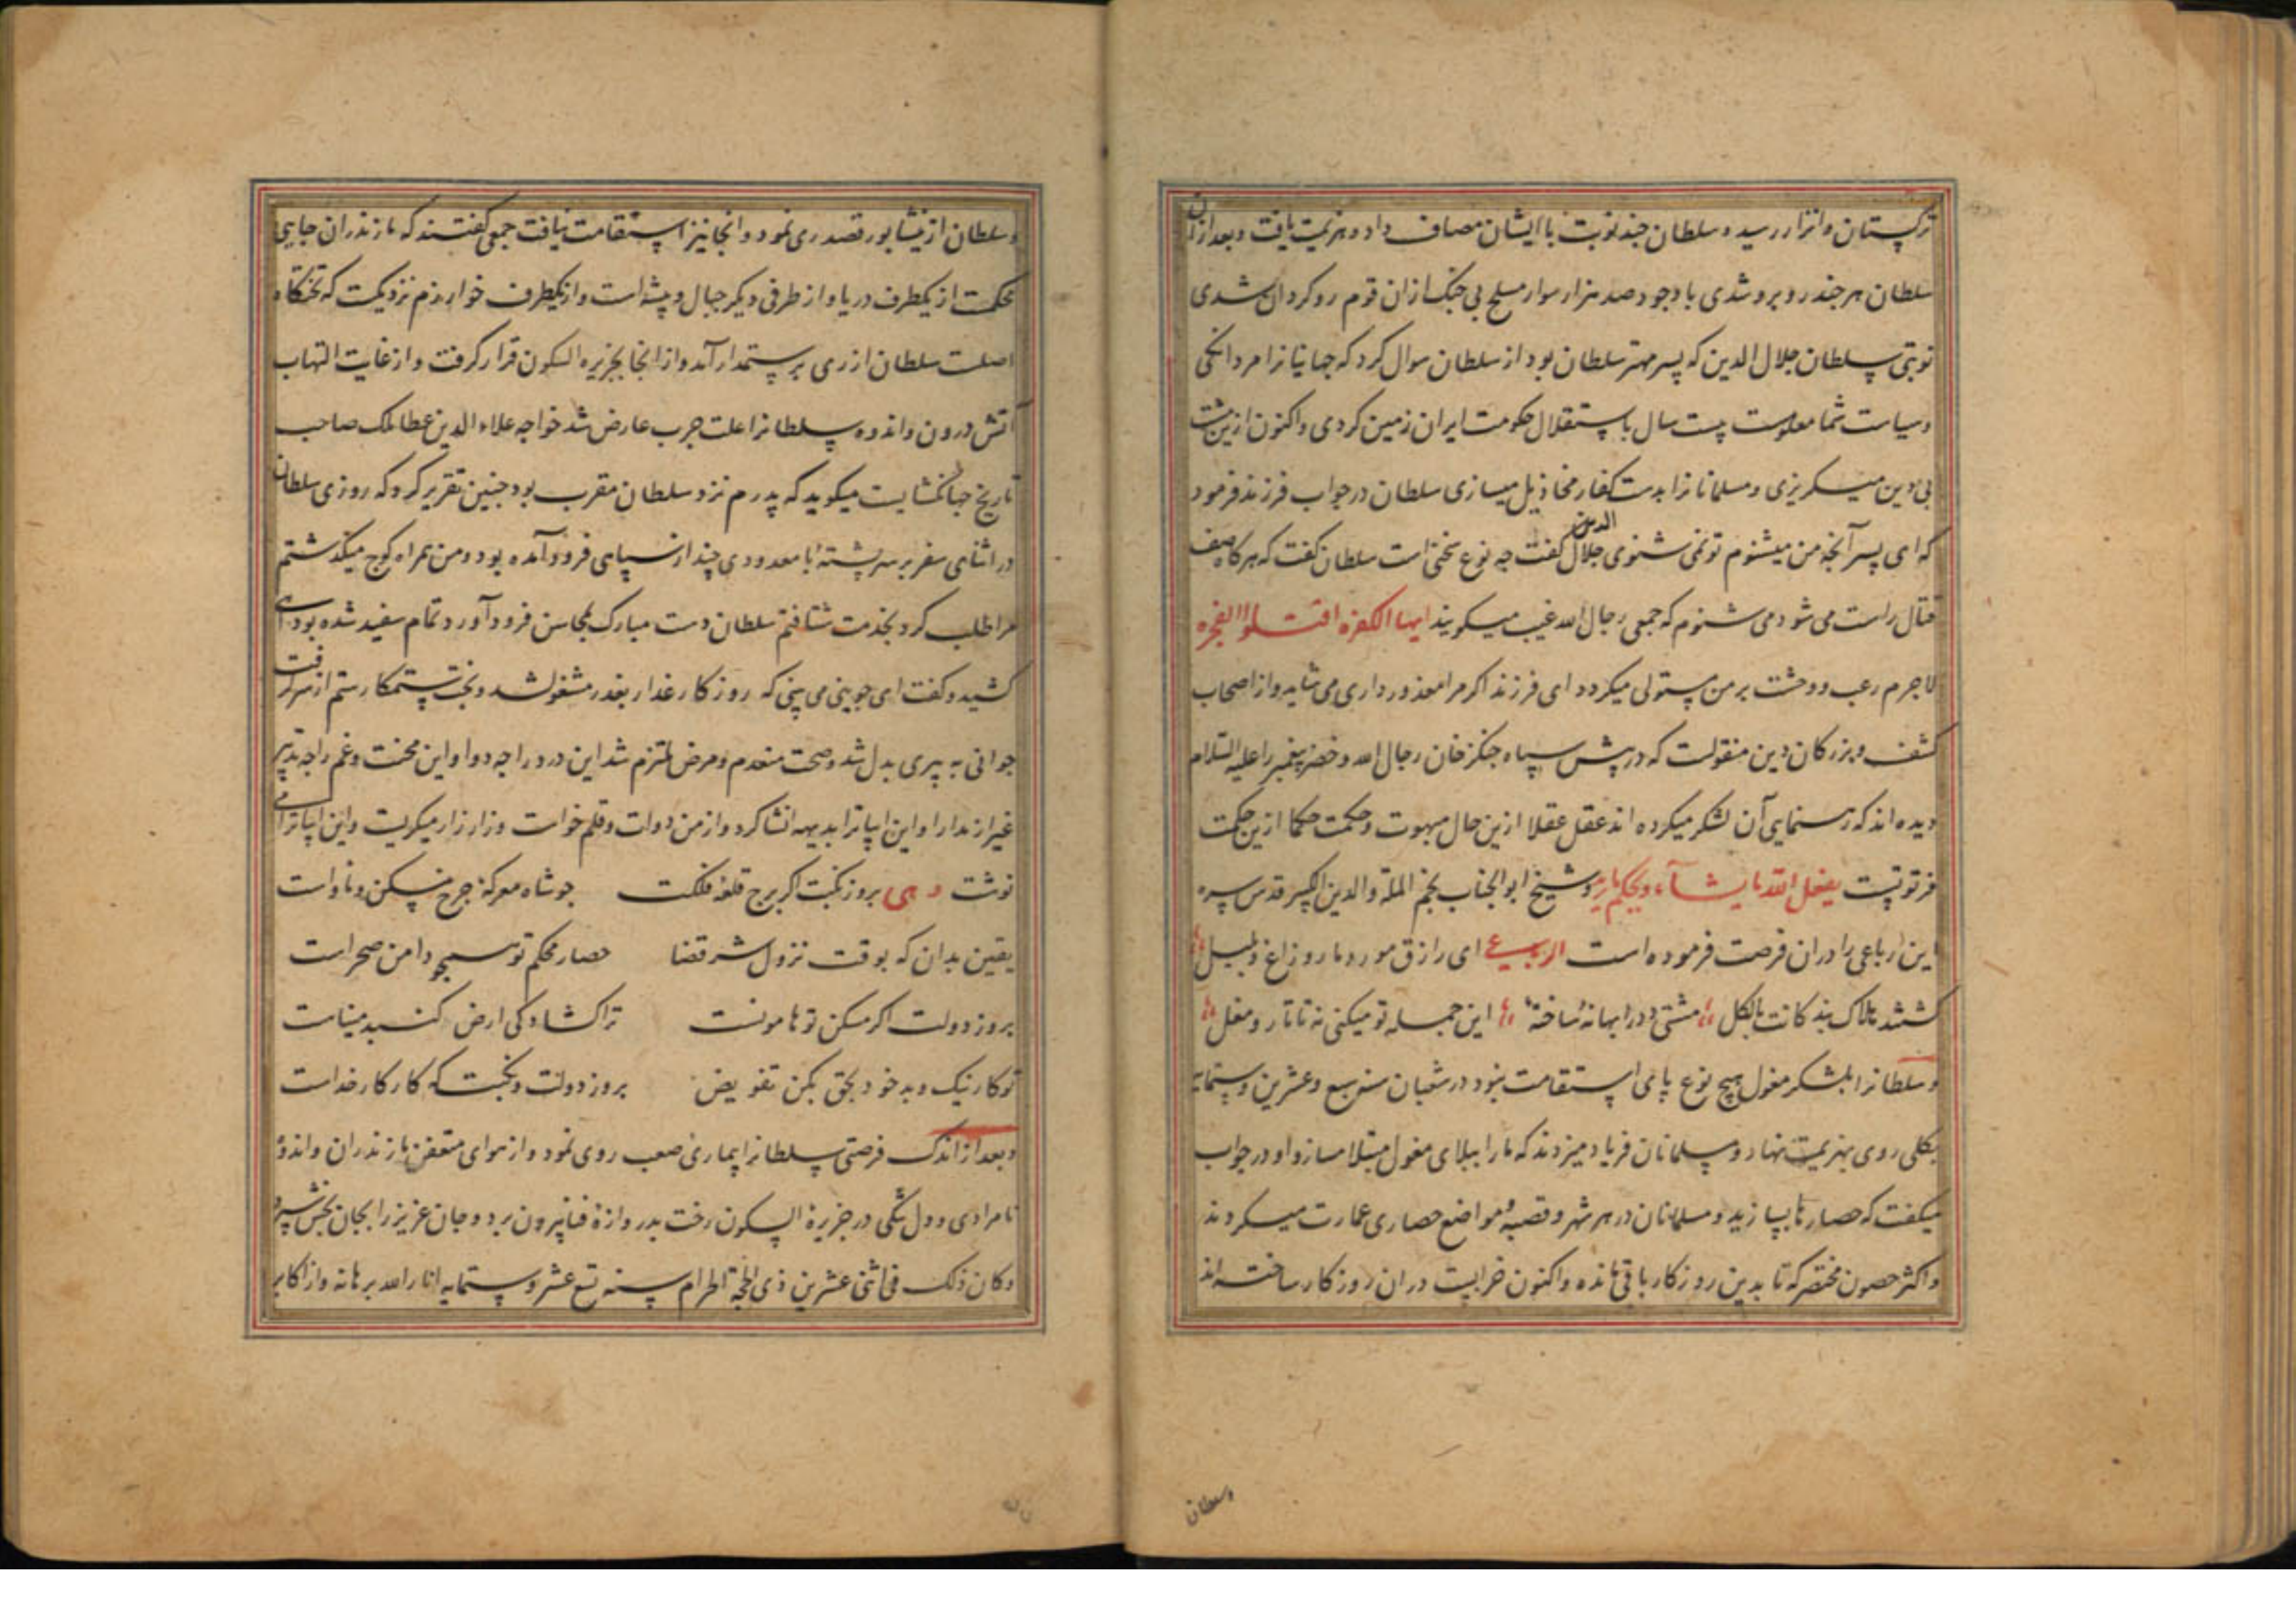 ترکستان و اترار رسید و سلطان چند نوبت با ایشان مصاف داد و هزیمت یافت و بعد ازان
سلطان هر چند روبرو شدی با وجود صد هزار سوار مسلح بی جنک ازان قوم رو کردان شدی
نوبتی سلطان جلال الدین که پسر مهتر سلطان بود از سلطان سوال کرد که جهانیانرا مردانکی
و سیاست شما معلومست بیست سال باستقلال حکومت ایران زمین کردی و اکنون ازین مشت
بی دین میکریزی و مسلمانانرا بدست کفار مخاذیل میسازی سلطان در جواب فرزند فرمود
که ای پسر آنچه من میشنوم تو نمی شنوی جلال الدین کفت چه نوع سخنی است سلطان کفت که هرکاه صف
قتال راست می شود می شنوم که جمعی رجال الله غیب میکویند ایها الکفره اقتلوا الفجره
لاجرم رعب و وحشت بر من مستولی میکردد ای فرزند اکر مرا معذور داری می شاید و از اصحاب
کشف و بزرکان دین منقولست که در پیش سپاه جنکز خان رجال الله و خضر پیغمبر را علیه السلام
دیده اند که رهنمایی آن لشکر میکرده اند عقل عقلا ازین حال مبهوت و حکمت حکما ازین حکمت
فرتوتیست یفعل الله ما یشاء و یحکم ما یرید و شیخ ابو الجناب نجم الملة والدین الکبیر قدس سره
این رباعی را دران فرصت فرموده است الربیع ای رازق مور و مار و زاغ و بلبل
کشتند هلاک بندکانت بالکل مشتی ددرا بهانهٔ ساختهٔ این جمله تو میکنی نه تاتار و مغل
و سلطانرا بلشکر مغول هیچ نوع پای استقامت نبود در شعبان سنه سبع و عشرین و ستمایه
بکلی روی بهزیمت نهاد و مسلمانان فریاد میزدند که ما را ببلای مغول مبتلا مساز و او در جواب
میکفت که حصارها بسازید و مسلمانان در هر شهر و قصبه و مواضع حصاری عمارت میکردند
و اکثر حصون مختصر که تا بدین روزکار باقی مانده و اکنون خرابست دران روزکار ساخته اند
وسلطان
و سلطان از نیشابور قصد ری نمود و انجا نیز استقامت نیافت جمعی کفتند که مازندران جایی
محکمست از یکطرف دریا و از طرفی دیکر جبال و بیشه است و از یکطرف خوارزم نزدیکست که تختکاه
اصلست سلطان از ری برستمدار آمد و از انجا بجزیره السکون قرار کرفت و از غایت التهاب
آتش درون و اندوه سلطانرا علت جرب عارض شد خواجه علاء الدین عطا ملک صاحب
تاریخ جهانکشایست میکوید که پدرم نزد سلطان مقرب بود جنین تقریر کرد که روزی سلطان
در اثنای سفر بر سر پشتهٔ با معدودی چند از سپاهی فرود آمده بود و من همراه کوج میکذشتم
مرا طلب کرد بخدمت شتافتم سلطان دست مبارک بمحاسن فرود آورد تمام سفید شده بود آهی
کشید و کفت ای جوینی می بینی که روزکار غدار بغدر مشغول شد و بخت ستمکار ستم از سر کرفت
جوانی به پیری بدل شد و صحت منعدم و مرض ملتزم شد این درد را چه دوا و این محنت و غم را چه تدبیر
غیر از مدارا و این ابیاترا بدیهه انشا کرد و از من دوات و قلم خواست و زار زار میکریست و این ابیاترا می
نوشت و هی بروز نکبت اکر برج قلعهٔ فلکت جو شاه معرکهٔ چرخ مسکن و ماواست
یقین بدان که بوقت نزول شر قضا حصار محکم تو همچو دامن صحراست
بروز دولت اکر مسکن تو هامونست ترا کشادکی ارض کنبد میناست
تو کار نیک و بد خود بحق بکن تفویض بروز دولت و نکبت که کار کار خداست
و بعد از اندک فرصتی سلطانرا بیماری صعب روی نمود و از هوای متعفن مازندران و اندوه
نامرادی و دل تنکی در جزیرهٔ السکون رخت بدروازهٔ فنا بیرون برد و جان عزیز را بجان بخش سپرد
و کان ذلک فی اثنی عشرین ذی الحجه الحرام سنه تسع عشر و ستمایه انار الله برهانه و از اکابر